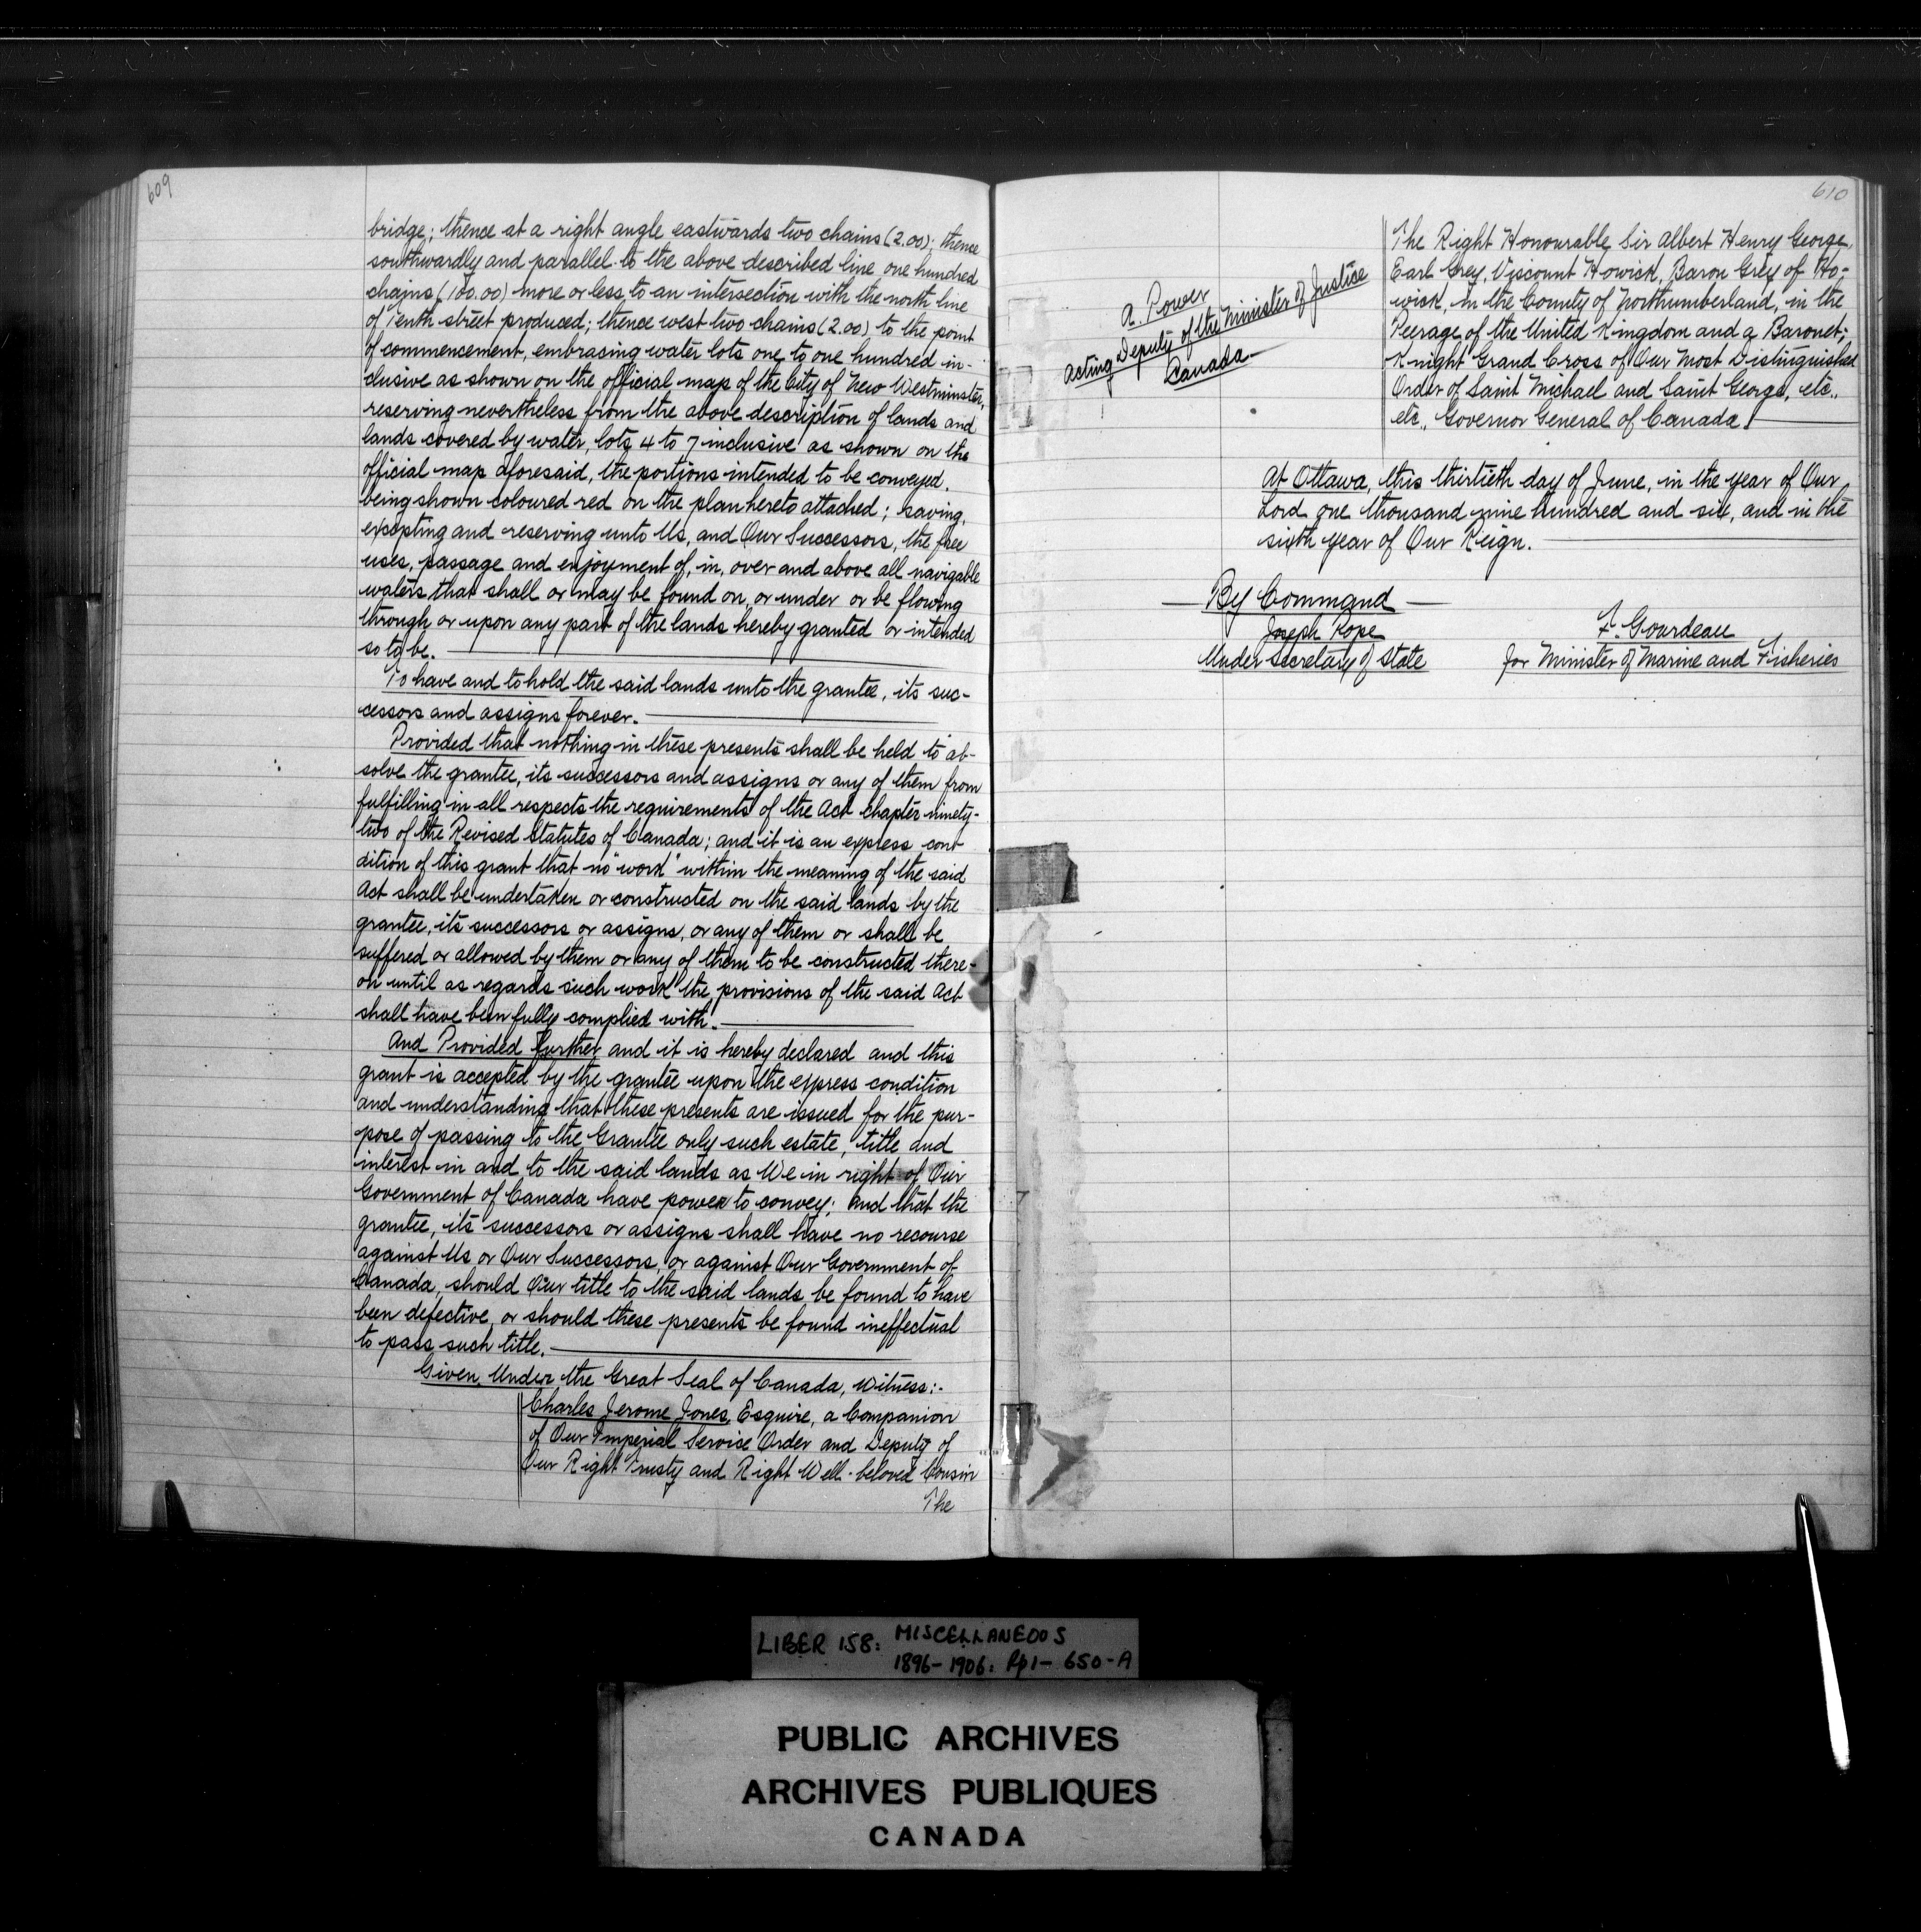 609
bridge; thence at a right angle eastwards two chains (2.00); thence
southwardly and parallel to the above described line one hundred
chains (100.00) more or less to an intersection with the north line
of Tenth street produced; thence west two chains (2.00) to the point
of commencement, embrasing water lots one to one hundred in-
clusive as shown on the official map of the City of New Westminster,
reserving nevertheless from the above description of lands and
lands covered by water, lots 4 to 7 inclusive as shown on the
official map aforesaid, the portions intended to be conveyed.
being shown coloured red on the plan hereto attached; saving,
excepting and reserving unto Us, and Our Successors, the free
uses, passage and enjoyment of, in, over and above all navigable
waters that shall or may be found on, or under or be flowing
through or upon any part of the lands hereby granted or intended
so to be.
To have and to hold the said lands unto the grantee, its suc-
cessors and assigns forever.
Provided that nothing in these presents shall be held to ab-
solve the grantee, its successors and assigns or any of them from
fulfilling in all respects the requirements of the Act Chapter ninety-
two of the Revised Statutes of Canada; and it is an express con-
dition of this grant that no "work" within the meaning of the said
Act shall be undertaken or constructed on the said lands by the
grantee, its successors or assigns, or any of them or shall be
suffered or allowed by them or any of them to be constructed there-
on until as regards such "work" the provisions of the said Act
shall have been fully complied with.
And Provided further and it is hereby declared and this
grant is accepted by the grantee upon the express condition
and understanding that these presents are issued for the pur-
pose of passing to the Grantee only such estate, title and
interest in and to the said lands as We in right of Our
Government of Canada have power to convey; and that the
grantee, its successors or assigns shall have no recourse
against Us or Our Successors, or against Our Government of
Canada, should Our title to the said lands be found to have
been defective, or should these presents be found ineffectual
to pass such title.
Given Under the Great Seal of Canada, Witness:-
Charles Jerome Jones, Esquire, a Companion
of Our Imperial Service Order and Deputy of
Our Right Trusty and Right Well-beloved Cousin
The
610
The Right Honourable Sir Albert Henry George,
Earl Grey, Viscount Howick, Baron Grey of Ho-
wick, in the County of Northumberland, in the
Peerage of the United Kingdom and a Baronet;
Knight Grand Cross of Our Most Distinguished
Order of Saint Michael and Saint George, etc.,
etc., Governor General of Canada.
A. Power
Acting Deputy of the Minister of Justice
Canada
At Ottawa, this thirtieth day of June, in the year of Our
Lord one thousand nine hundred and six, and in the
sixth year of Our Reign.
By Command
Joseph Pope
Under Secretary of State
F. Gourdeau
for Minister of Marine and Fisheries
LIBER 158: MISCELLANEOUS
1896-1906: Pp1-650-A
PUBLIC ARCHIVES
ARCHIVES PUBLIQUES
CANADA